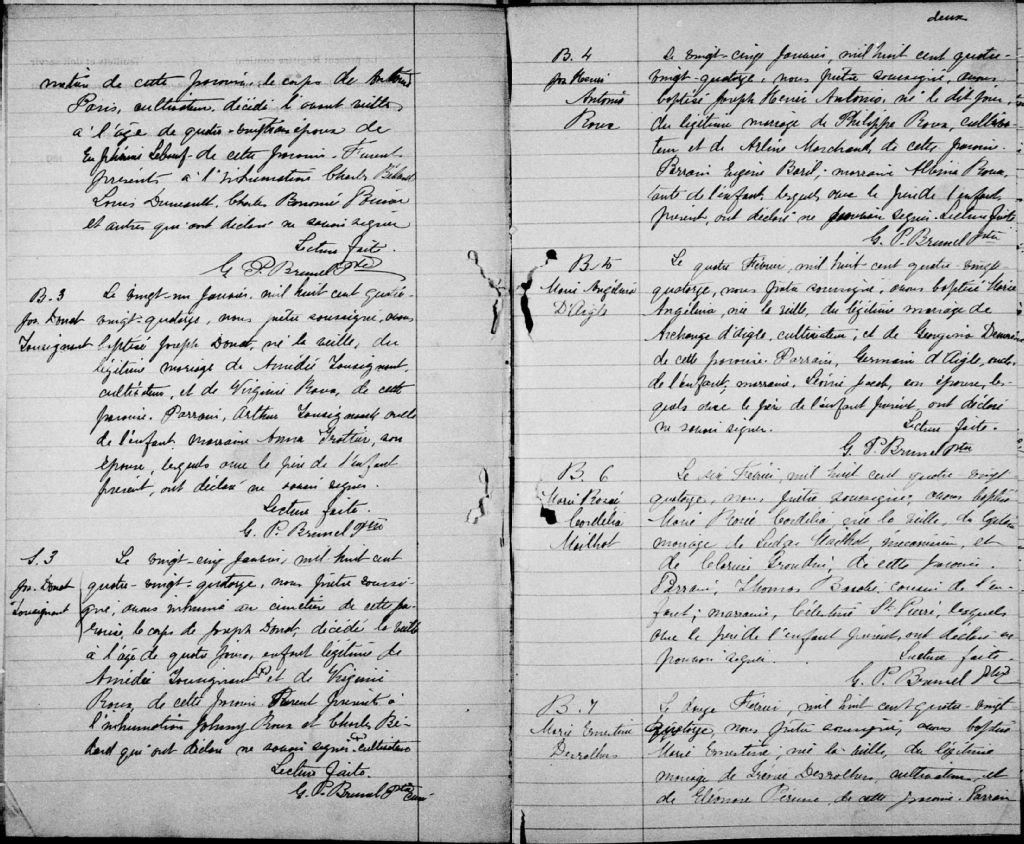 de cette paroisse, le corps de
Paris, cultivateur, décédé l'avant veille
à l'âge de quatre-vingt ans époux de
Euphémie Lebeuf de cette paroisse. Furent
présents à l'inhumation Charles Béland
Louis Dumault, Charles Bonomie Poisson
et autres qui ont déclaré ne savoir signer
Lecture faite.
G. P. Brunel Ptre
B. 3
Jos. Donat
Tousignant
Le vingt-un Janvier, mil huit cent quatre-
vingt-quatorze, nous prêtre soussigné, avons
baptisé Joseph Donat, né la veille, du
légitime mariage de Amédée Tousignant,
cultivateur, et de Virginie Roux, de cette
paroisse. Parrain, Arthur Tousignant, oncle
de l'enfant, marraine Anna Trottier, son
épouse, lesquels avec le père de l'enfant
présent, ont déclaré ne savoir signer.
Lecture faite.
G. P. Brunel Ptre
S. 3
Jos. Donat
Tousignant
Le vingt-cinq Janvier, mil huit cent
quatre-vingt-quatorze, nous prêtre soussi-
gné, avons inhumé au cimetière de cette pa-
roisse, le corps de Joseph Donat, décédé la veille
à l'âge de quatre jours, enfant légitime de
Amédée Tousignant et de Virginie
Roux, de cette paroisse. Furent présents à
l'inhumation Johnny Roux et Charles Bé-
land qui ont déclaré ne savoir signer. cultivateur
Lecture faite.
G. P. Brunel Ptre Curé
deux
B. 4
Jos Henri
Antonio
Roux
Le vingt-cinq Janvier, mil huit cent quatre-
vingt-quatorze, nous prêtre soussigné, avons
baptisé Joseph Henri Antonio, né le dit jour,
du légitime mariage de Philippe Roux, cultiva-
teur et de Arline Marchand de cette paroisse.
Parrain Eugène Baril, marraine Albina Roux,
tante de l'enfant, lesquels avec le père de l'enfant
présent, ont déclaré ne pouvoir signer. Lecture faite
G. P. Brunel Ptre
B. 5
Marie Angélina
D'Aigle
Le quatre Février, mil huit cent quatre-vingt
quatorze, nous prêtre soussigné, avons baptisé Marie
Angélina, née la veille, du légitime mariage de
Archange d'Aigle, cultivateur, et de Georgina
de cette paroisse. Parrain, Germain d'Aigle, oncle
de l'enfant, marraine, Jacob, son épouse, les-
quels avec le père de l'enfant présent, ont déclaré
ne savoir signer. Lecture faite.
G. P. Brunel Ptre
B. 6
Marie Rosée
Cordélia
Mailhot
Le six Février, mil huit cent quatre-vingt
quatorze, nous prêtre soussigné, avons baptisé
Marie Rosée Cordélia née la veille, du légitime
mariage de Ludger Mailhot, mécanicien, et
de Clarisse Trondin, de cette paroisse.
Parrain, Thomas Baril, cousin de l'en-
fant; marraine, Célestine St. Pierre, lesquels
avec le père de l'enfant présent, ont déclaré ne
pouvoir signer. Lecture faite.
G. P. Brunel Ptre
B. 7
Marie Ernestine
Desrochers
Le douze Février, mil huit cent quatre-vingt
quatorze, nous prêtre soussigné, avons baptisé
Marie Ernestine, née la veille, du légitime
mariage de Trefflé Desrochers, cultivateur, et
de Eléonore Perreau, de cette paroisse. Parrain